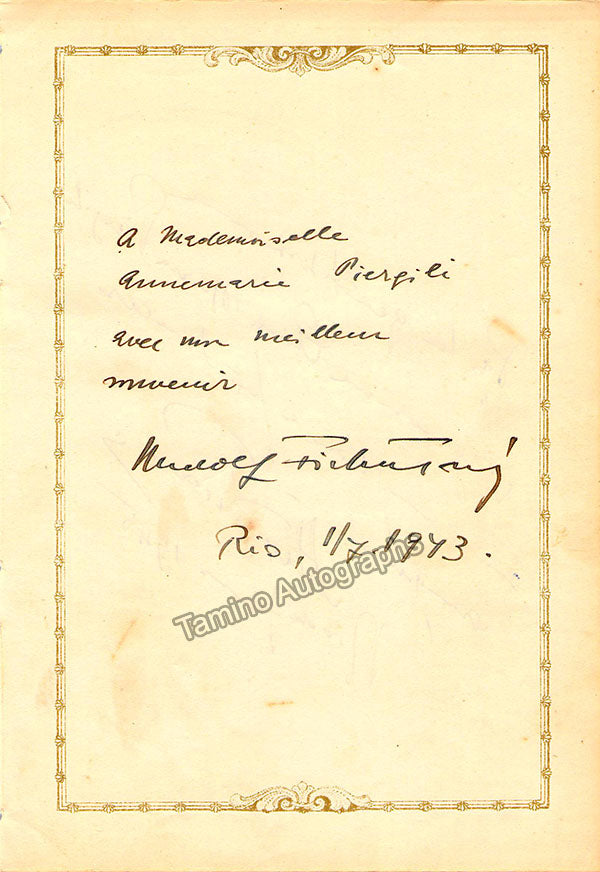 A Mademoiselle
Annemarie Piergili
avec mon meilleur
souvenir
Rudolf Firkušný
Rio, 1/7.1943.
Tamino Autographs